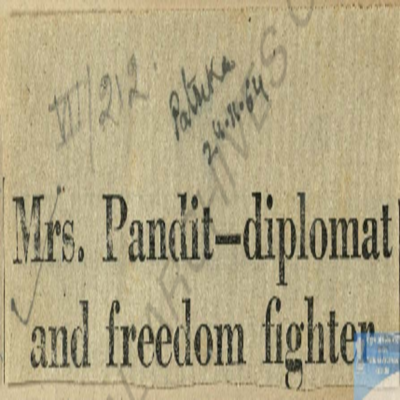 VII/212.
Patrika
24.11.64
ARCHIVES
Mrs. Pandit—diplomat
and freedom fighter